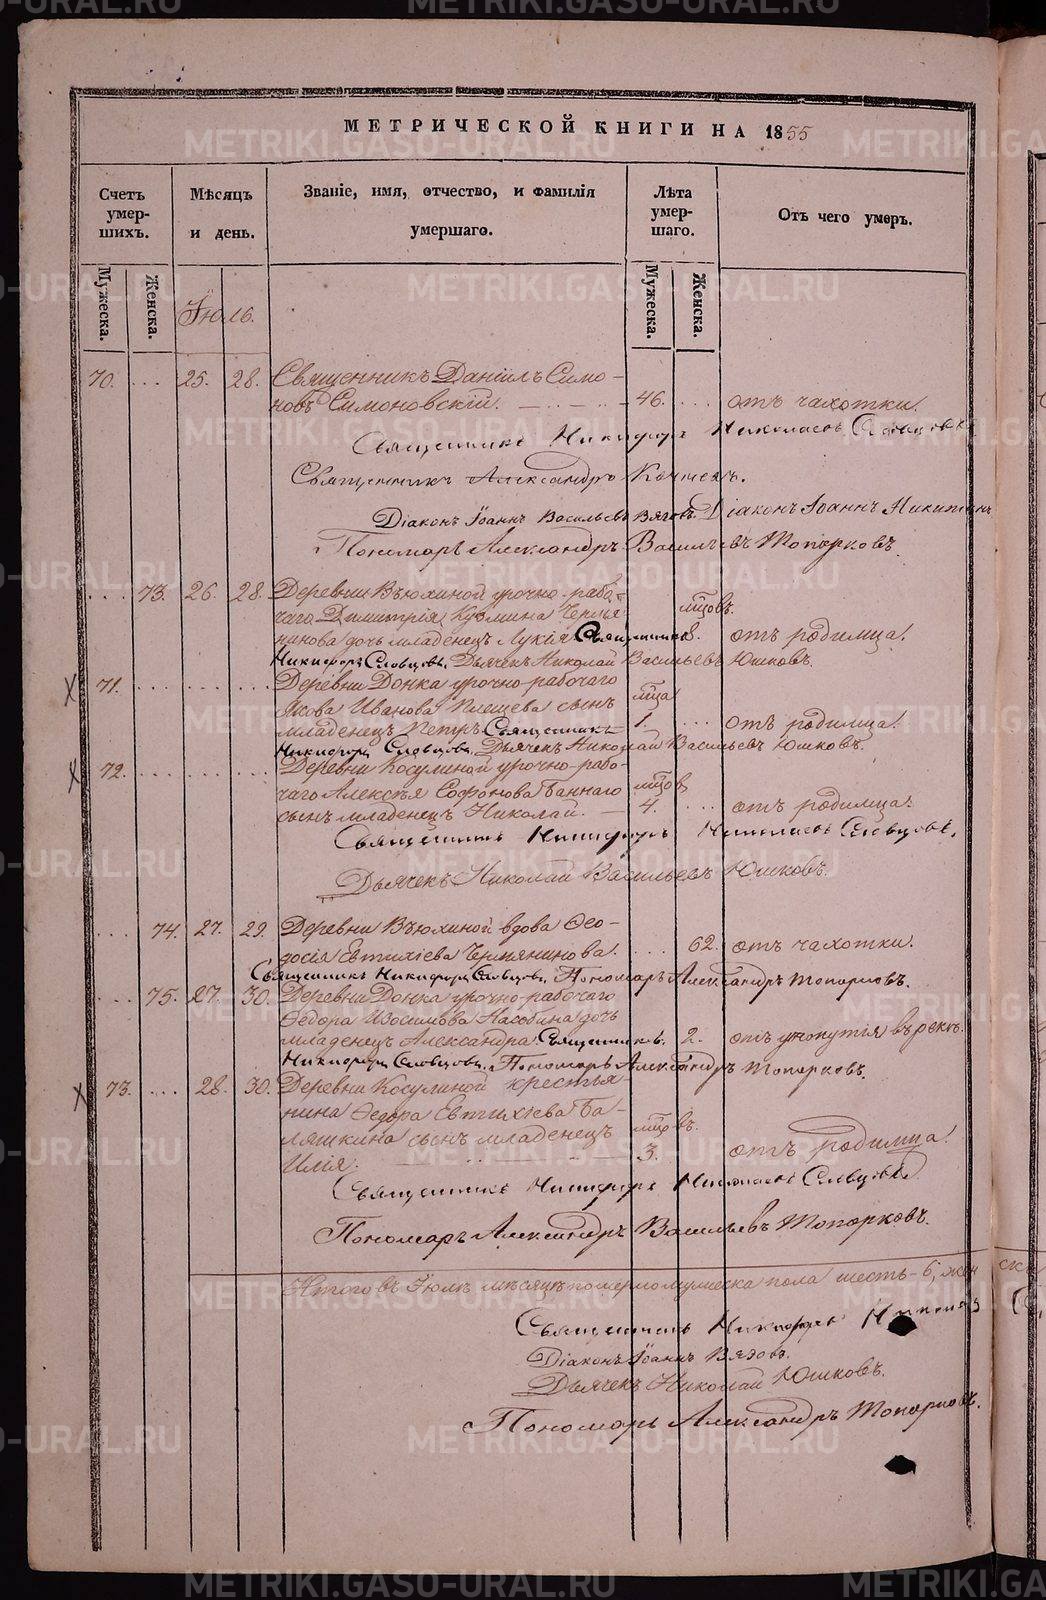 МЕТРИЧЕСКОЙ КНИГИ НА 1855
Счетъ умер- шихъ.
Мѣсяцъ и день.
Званіе, имя, отчество, и фамилія умершаго.
Лѣта умер- шаго.
Отъ чего умеръ.
Мужеска. Женска. Мужеска. Женска.
Іюль.
70. ... 25. 28. Священникъ Даніилъ Симо-
новъ Симоновскій. 46. ... отъ чахотки.
Священникъ Никифоръ Николаевъ Словцовъ
Священникъ Александръ
Діаконъ Іоаннъ Васильевъ Вязовъ. Діаконъ Іоаннъ Никитинъ
Пономарь Александръ Васильевъ Топорковъ.
... 73. 26. 28. Деревни Вьюхиной урочно-рабо-
чаго Димитрія Кузмина мцовъ.
дочь младенецъ Лукія. Священникъ 8. отъ родимца.
Никифоръ Словцовъ. Дьячекъ Николай Васильевъ Юшковъ.
71. ... Деревни Донка урочно-рабочаго
Якова Иванова Плещева сынъ мца
младенецъ Петръ. Священникъ 1. ... отъ родимца.
Никифоръ Словцовъ. Дьячекъ Николай Васильевъ Юшковъ.
72. ... Деревни Косулиной урочно-рабо-
чаго Алексѣя Софонова Баннаго мцовъ
сынъ младенецъ Николай. 4. ... отъ родимца.
Священникъ Никифоръ Николаевъ Словцовъ.
Дьячекъ Николай Васильевъ Юшковъ.
... 74. 27. 29. Деревни Вьюхиной вдова Ѳео-
досія Евтихіева ... 62. отъ чахотки.
Священникъ Никифоръ Словцовъ. Пономарь Александръ Топорковъ.
... 75. 27. 30. Деревни Донка урочно-рабочаго
Ѳедора Изосимова дочь
младенецъ Александра. Священникъ 2. отъ утопутія въ рекѣ.
Никифоръ Словцовъ. Пономарь Александръ Топорковъ.
73. ... 28. 30. Деревни Косулиной крестья-
нина Ѳедора Евтихіева Ба-
ляшкина сынъ младенецъ мцовъ.
Илія. 3. отъ родимца.
Священникъ Никифоръ Николаевъ Словцовъ.
Пономарь Александръ Васильевъ Топорковъ.
Итого въ Іюлѣ мѣсяцѣ померло мужеска пола шесть - 6, жен ска
Священникъ Никифоръ
Діаконъ Іоаннъ Вязовъ.
Дьячекъ Николай Юшковъ.
Пономарь Александръ Топорковъ.
METRIKI.GASO-URAL.RU